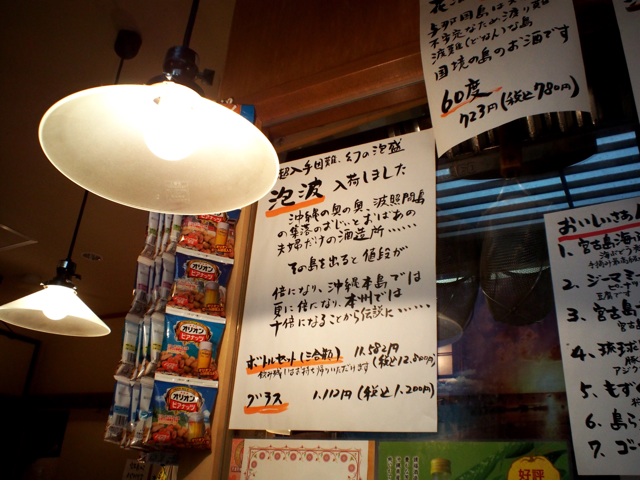 与那国島は
不安定なため渡り難
波難(どなん)な島
国境の島のお酒です
60度
723円(税込780円)
超入手困難、幻の泡盛
泡波 入荷しました
沖縄の奥の奥、波照間島
の集落のおじいとおばあの
夫婦だけの酒造所……
その島を出ると値段が
倍になり、沖縄本島では
更に倍になり、本州では
十倍になることから伝説に……
ボトルセット(三合瓶) 11,582円
飲み残しはお持ち帰りいただけます (税込12,500円)
グラス 1,112円(税込1,200円)
オリオン
ビアナッツ
オリオン
ビアナッツ
オリオン
ビアナッツ
おいしいさ
1. 宮古島海
2. ジーマミ
3. 宮古島
4. 琉球
5. もず
6. 島ら
7. ゴー
好評